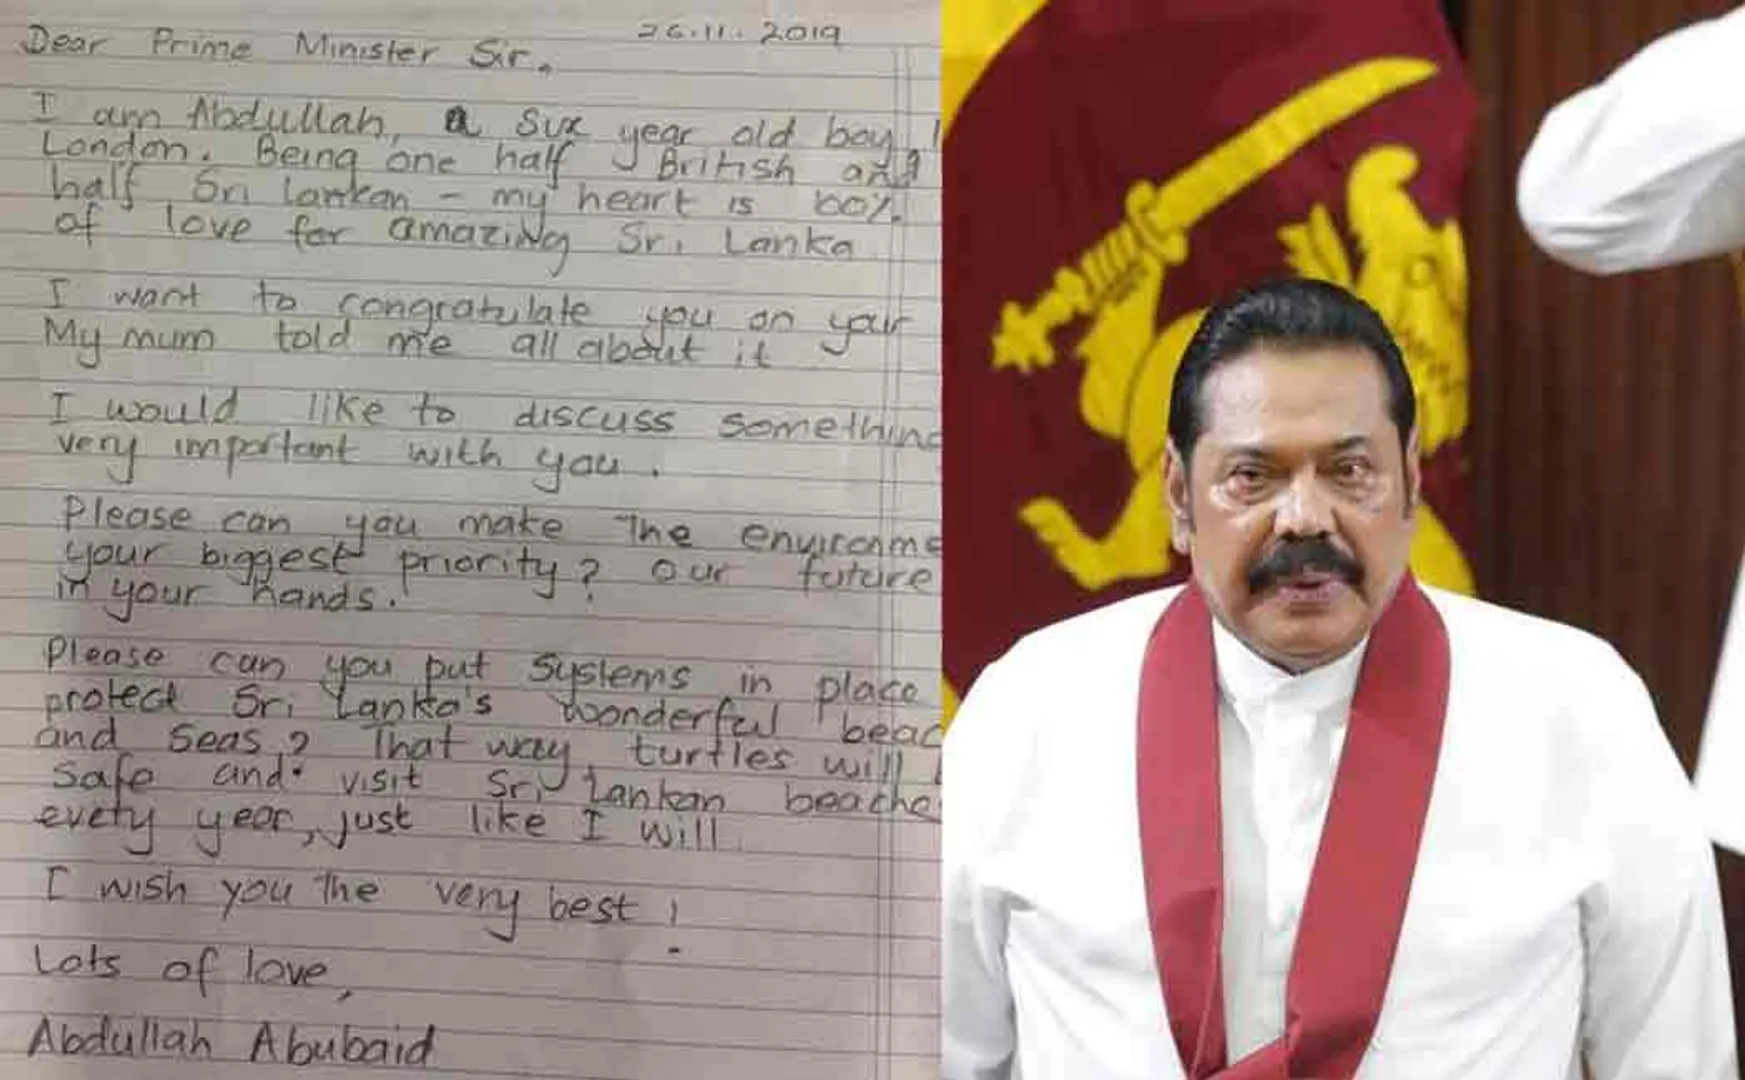 26.11.2019
Dear Prime Minister Sir,
I am Abdullah, a six year old boy
London. Being one half British and
half Sri Lankan – my heart is 100%
of love for amazing Sri Lanka
I want to congratulate you on your
My mum told me all about it
I would like to discuss something
very important with you.
Please can you make the environme
your biggest priority? Our future
in your hands.
Please can you put systems in place
protect Sri Lanka's wonderful beac
and seas? That way, turtles will
safe and visit Sri Lankan beache
every year, just like I will.
I wish you the very best!
Lots of love,
Abdullah Abubaid